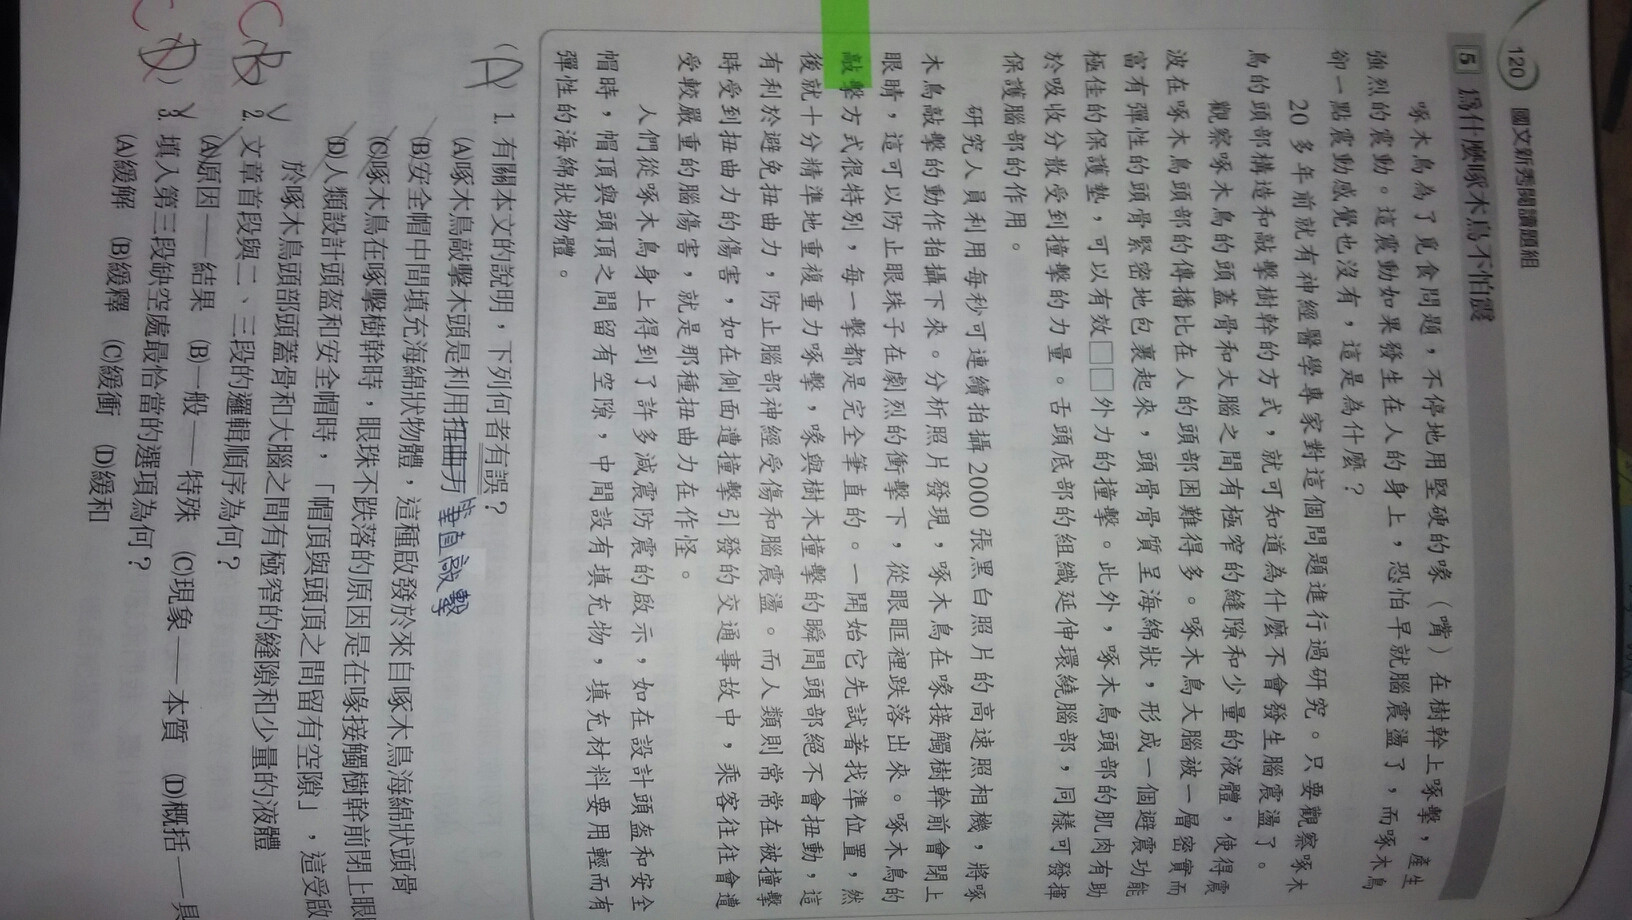 120 國文新秀閱讀題組
5 為什麼啄木鳥不怕震
啄木鳥為了覓食問題，不停地用堅硬的喙（嘴）在樹幹上啄擊，產生
強烈的震動。這震動如果發生在人的身上，恐怕早就腦震盪了，而啄木鳥
卻一點震動感覺也沒有，這是為什麼？
20 多年前就有神經醫學專家對這個問題進行過研究。只要觀察啄木
鳥的頭部構造和敲擊樹幹的方式，就可知道為什麼不會發生腦震盪了。
觀察啄木鳥的頭蓋骨和大腦之間有極窄的縫隙和少量的液體，使得震
波在啄木鳥頭部的傳播比在人的頭部困難得多。啄木鳥大腦被一層密實而
富有彈性的頭骨緊密地包裹起來，頭骨骨質呈海綿狀，形成一個避震功能
極佳的保護墊，可以有效□□外力的撞擊。此外，啄木鳥頭部的肌肉有助
於吸收分散受到撞擊的力量。舌頭底部的組織延伸環繞腦部，同樣可發揮
保護腦部的作用。
研究人員利用每秒可連續拍攝 2000 張黑白照片的高速照相機，將啄
木鳥敲擊的動作拍攝下來。分析照片發現，啄木鳥在喙接觸樹幹前會閉上
眼睛，這可以防止眼珠子在劇烈的衝擊下，從眼眶裡跌落出來。啄木鳥的
敲擊方式很特別，每一擊都是完全筆直的。一開始它先試著找準位置，然
後就十分精準地重複重力啄擊，喙與樹木撞擊的瞬間頭部絕不會扭動，這
有利於避免扭曲力，防止腦部神經受傷和腦震盪。而人類則常常在被撞擊
時受到扭曲力的傷害，如在側面遭撞擊引發的交通事故中，乘客往往會遭
受較嚴重的腦傷害，就是那種扭曲力在作怪。
人們從啄木鳥身上得到了許多減震防震的啟示，如在設計頭盔和安全
帽時，帽頂與頭頂之間留有空隙，中間設有填充物，填充材料要用輕而有
彈性的海綿狀物體。
(A) 1. 有關本文的說明，下列何者有誤？
(A)啄木鳥敲擊木頭是利用扭曲力 筆直敲擊
(B)安全帽中間填充海綿狀物體，這種啟發於來自啄木鳥海綿狀頭骨
(C)啄木鳥在啄擊樹幹時，眼珠不跌落的原因是在喙接觸樹幹前閉上眼
(D)人類設計頭盔和安全帽時，「帽頂與頭頂之間留有空隙」，這受啟
於啄木鳥頭部頭蓋骨和大腦之間有極窄的縫隙和少量的液體
C B 2. 文章首段與二、三段的邏輯順序為何？
(A)原因——結果 (B)一般——特殊 (C)現象——本質 (D)概括——具
C D 3. 填入第三段缺空處最恰當的選項為何？
(A)緩解 (B)緩釋 (C)緩衝 (D)緩和